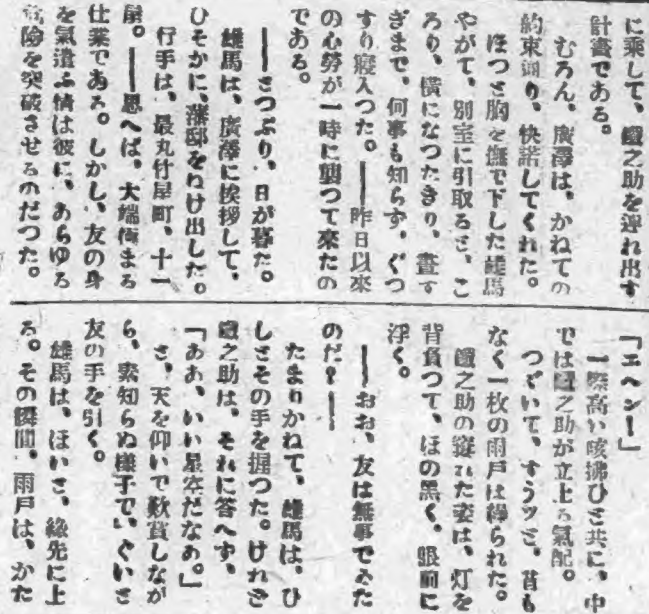 に乘して、鐵之助を連れ出す
計畫である。
むろん、廣澤は、かねての
約束通り、快諾してくれた。
ほつと胸を撫で下した雄馬
やがて、別室に引取ると、こ
ろり、橫になつたきり、晝す
ぎまで、何事も知らず、ぐつ
すり寢入つた。――昨日以來
の心勞が一時に襲つて來たの
である。
――とつぷり、日が暮た。
雄馬は、廣澤に挨拶して、
ひそかに、藩邸をぬけ出した。
行手は、最丸竹屋町、十一
屋。――思へば、大端傓まる
仕業である。しかし、友の身
を氣遣ふ情は彼に、あらゆる
危險を突破させるのだつた。
「エヘン！」
一際高い咳拂ひと共に、中
では鐵之助が立上る氣配。
つゞいて、すうツと、音も
なく一枚の雨戶は繰られた。
鐵之助の窶れた姿は、灯を
背負つて、ほの黑く、眼前に
浮く。
――おお、友は無事でゐた
のだ！――
たまりかねて、雄馬は、ひ
しとその手を握つた。けれど
鐵之助は、それに答へず、
「ああ、いい星空だなあ。」
と、天を仰いで歎賞しなが
ら、素知らぬ樣子で、ぐいと
友の手を引く。
雄馬は、ほいと、緣先に上
る。その瞬間、雨戶は、かた